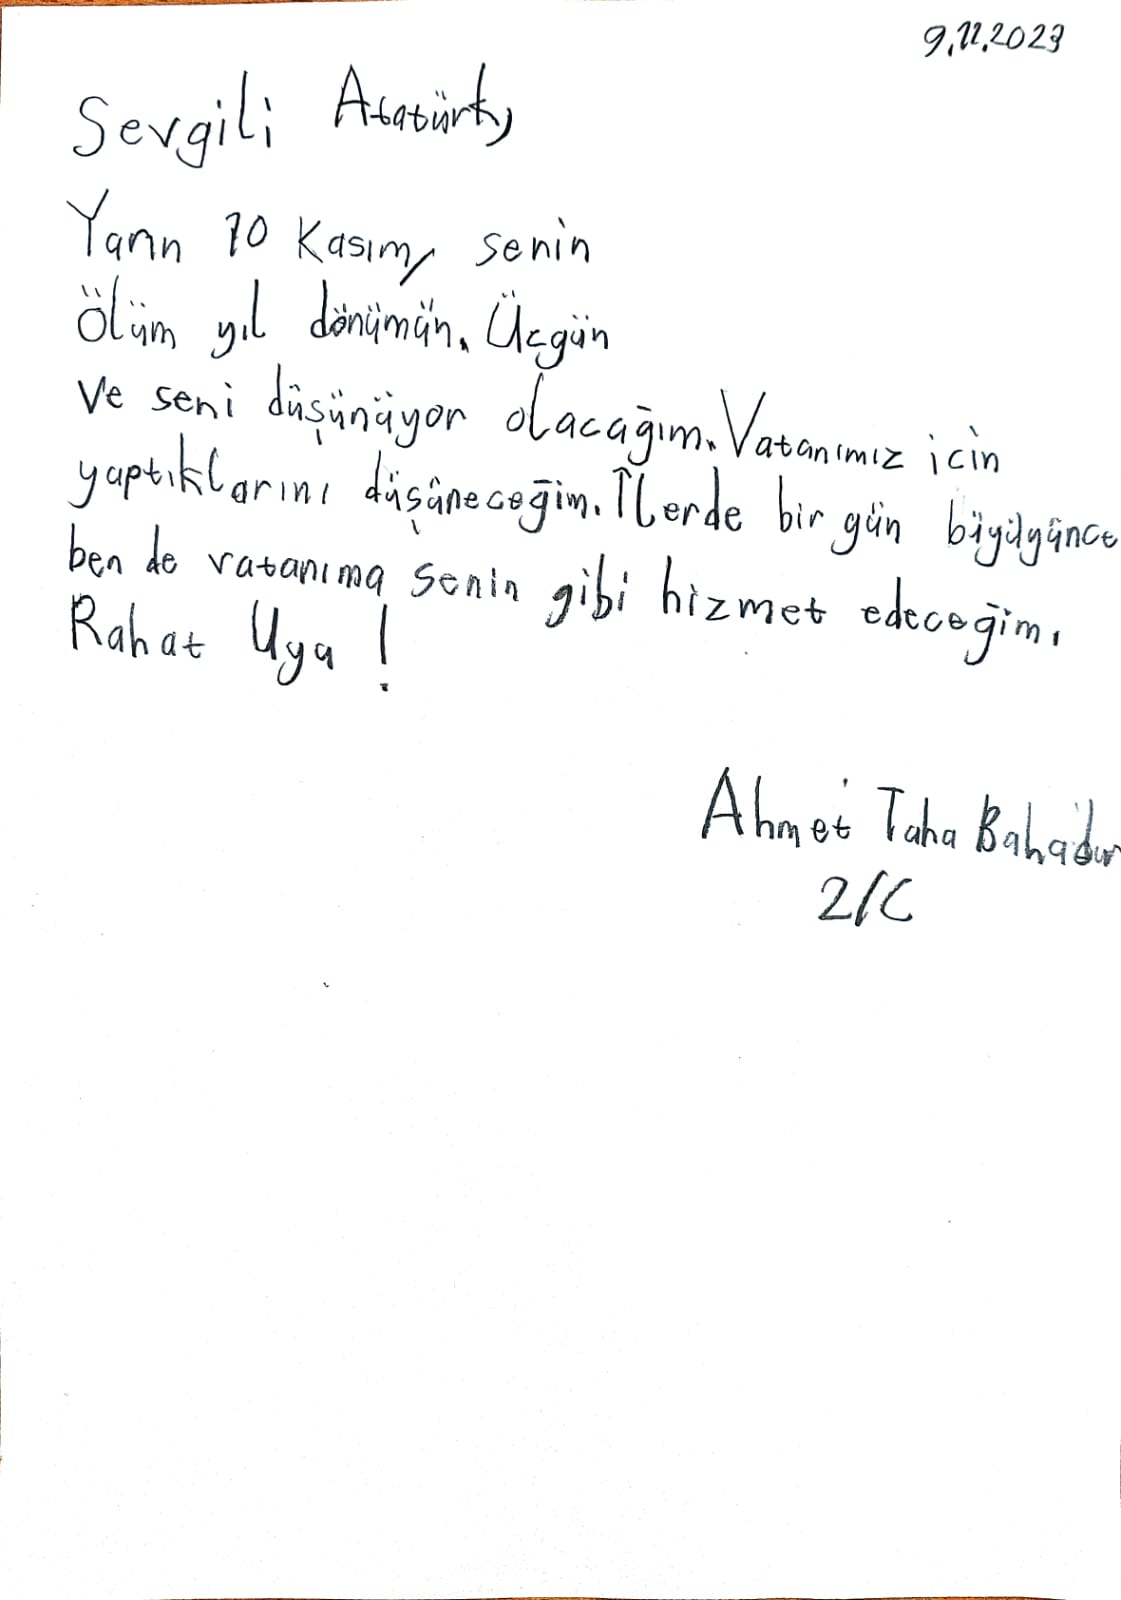 9.11.2023
Sevgili Atatürk,
Yarın 10 Kasım, senin
ölüm yıl dönümün. Üzgün
ve seni düşünüyor olacağım. Vatanımız için
yaptıklarını düşüneceğim. İlerde bir gün büyüyünce
ben de vatanıma senin gibi hizmet edeceğim.
Rahat Uyu !
Ahmet Taha Bahadır
2/C